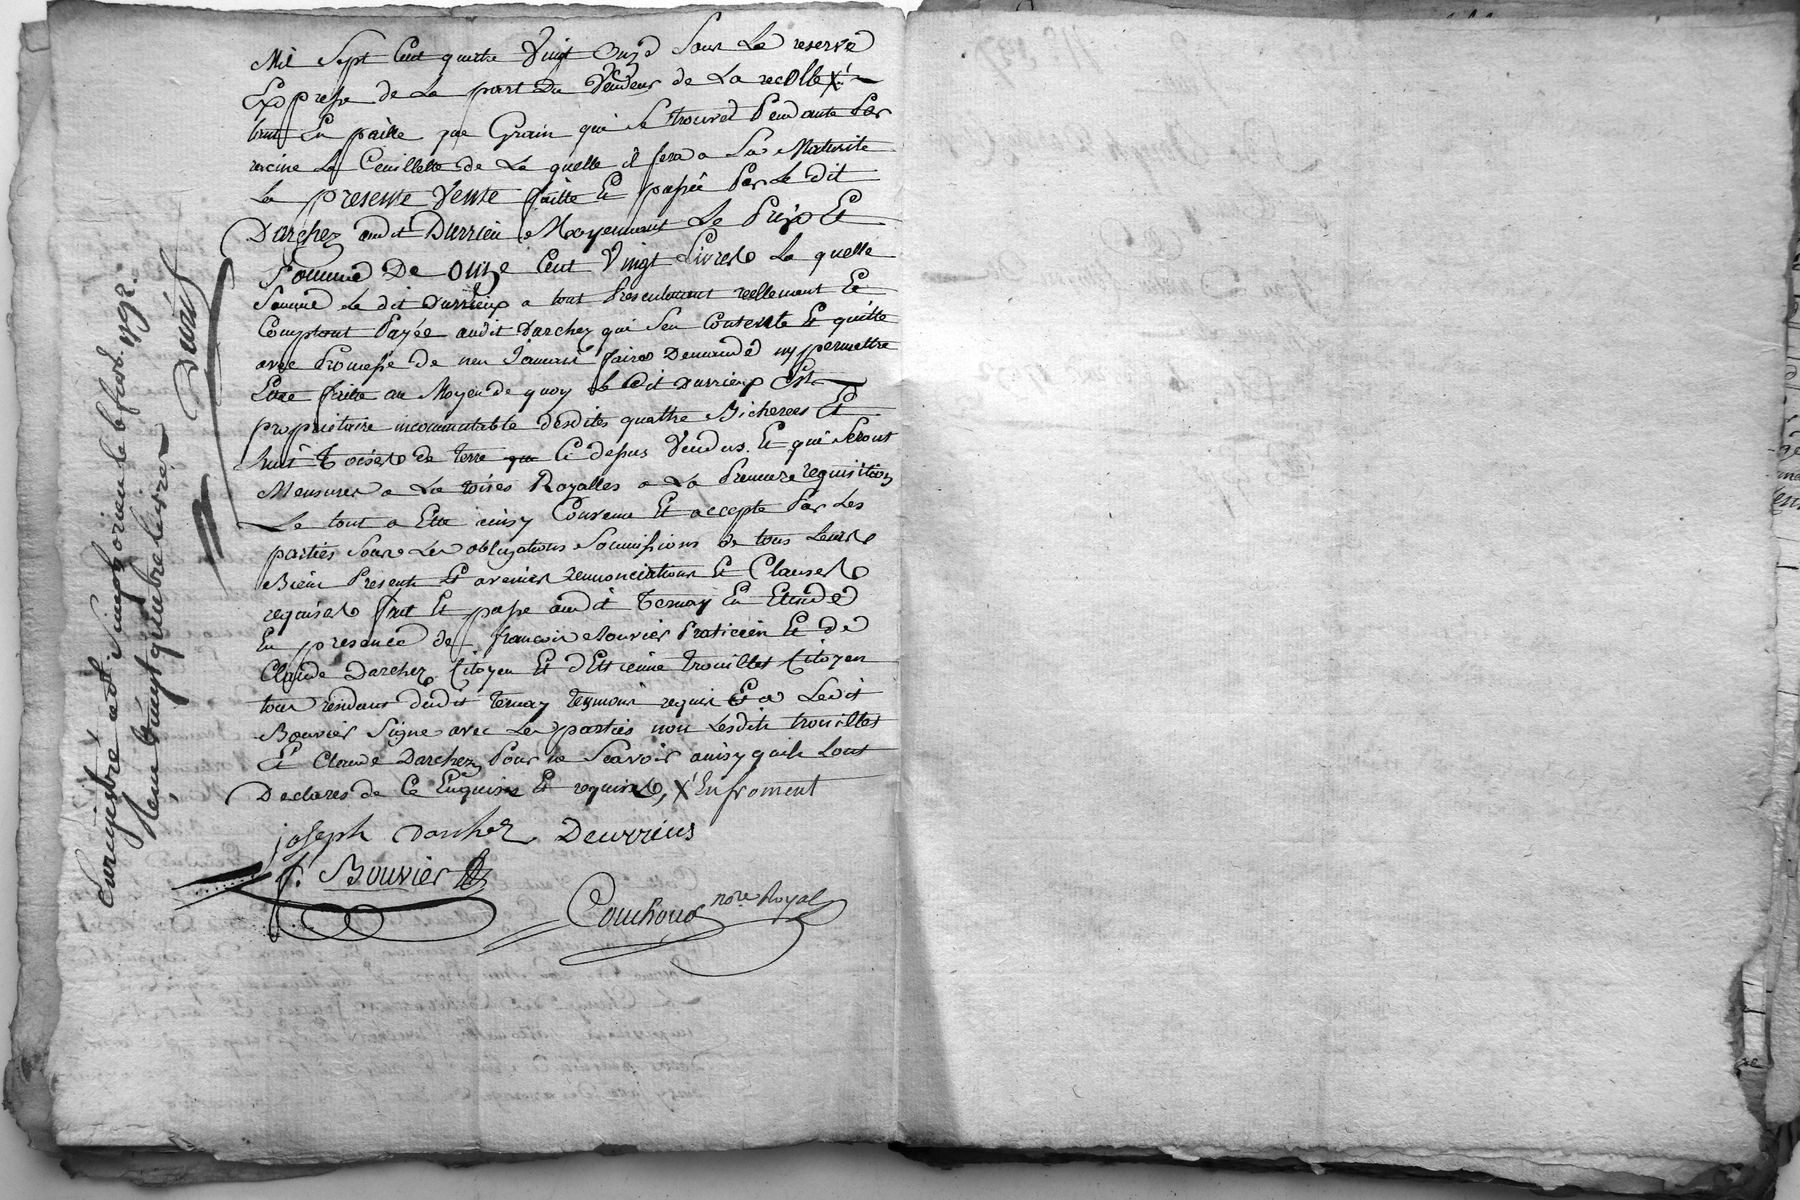 Mil Sept Cent quatre Vingt Onze Sous La reserve
Expresse de La part Du Vendeur de La recolte X
tant En paille que Grain qui Se trouve Pendante Par
racine La Ceuillette de La quelle il fera a Sa Maturité
La presente Vente faitte Et passée Par Le dit
Darchez audit Durrieu Moyennant Le Prix Et
Somme De Onze Cent Vingt Livres La quelle
Somme Le dit Durrieux a tout Presentement reellement Et
Comptant Payée audit Darchez qui Sen Contente Et quitte
avec Promesse de nen Jamais faire Demande ny permettre
Etre faitte au Moyen de quoy Le dit Durrieux Est
proprietaire incommutable desdites quatthre Bicherees Et
huit Toises de terre Ci dessus Vendus Et qui Seront
Mesurees a La toises Royalles a La Premiere requisition
Le tout a Etté ainsy Convenu Et accepté Par Les
parties Sous Les obligations Soumissions de tous Leurs
Biens Presents Et avenirs renonciations Et Clauses
requises fait Et passe audit Ternay En Etude
En presence de françois Bouvier Praticien Et de
Claude Darchez Citoyen Et dEttienne trouillet Citoyen
tous residants dudit Ternay temoins requis Et a Ledit
Bouvier Signe avec Les parties non Lesdits trouillet
Et Claude Darchez Pour ne Scavoir ainsy quils Lont
Declares de Ce Enquis Et requis, X En froment
joseph Darchez Deurrieus
f. Bouvier
Couchoud nore Royal
Enregistre a St Simphorien le 6 fevr. 1792.
Reçu vingt quatre livres
Durieu